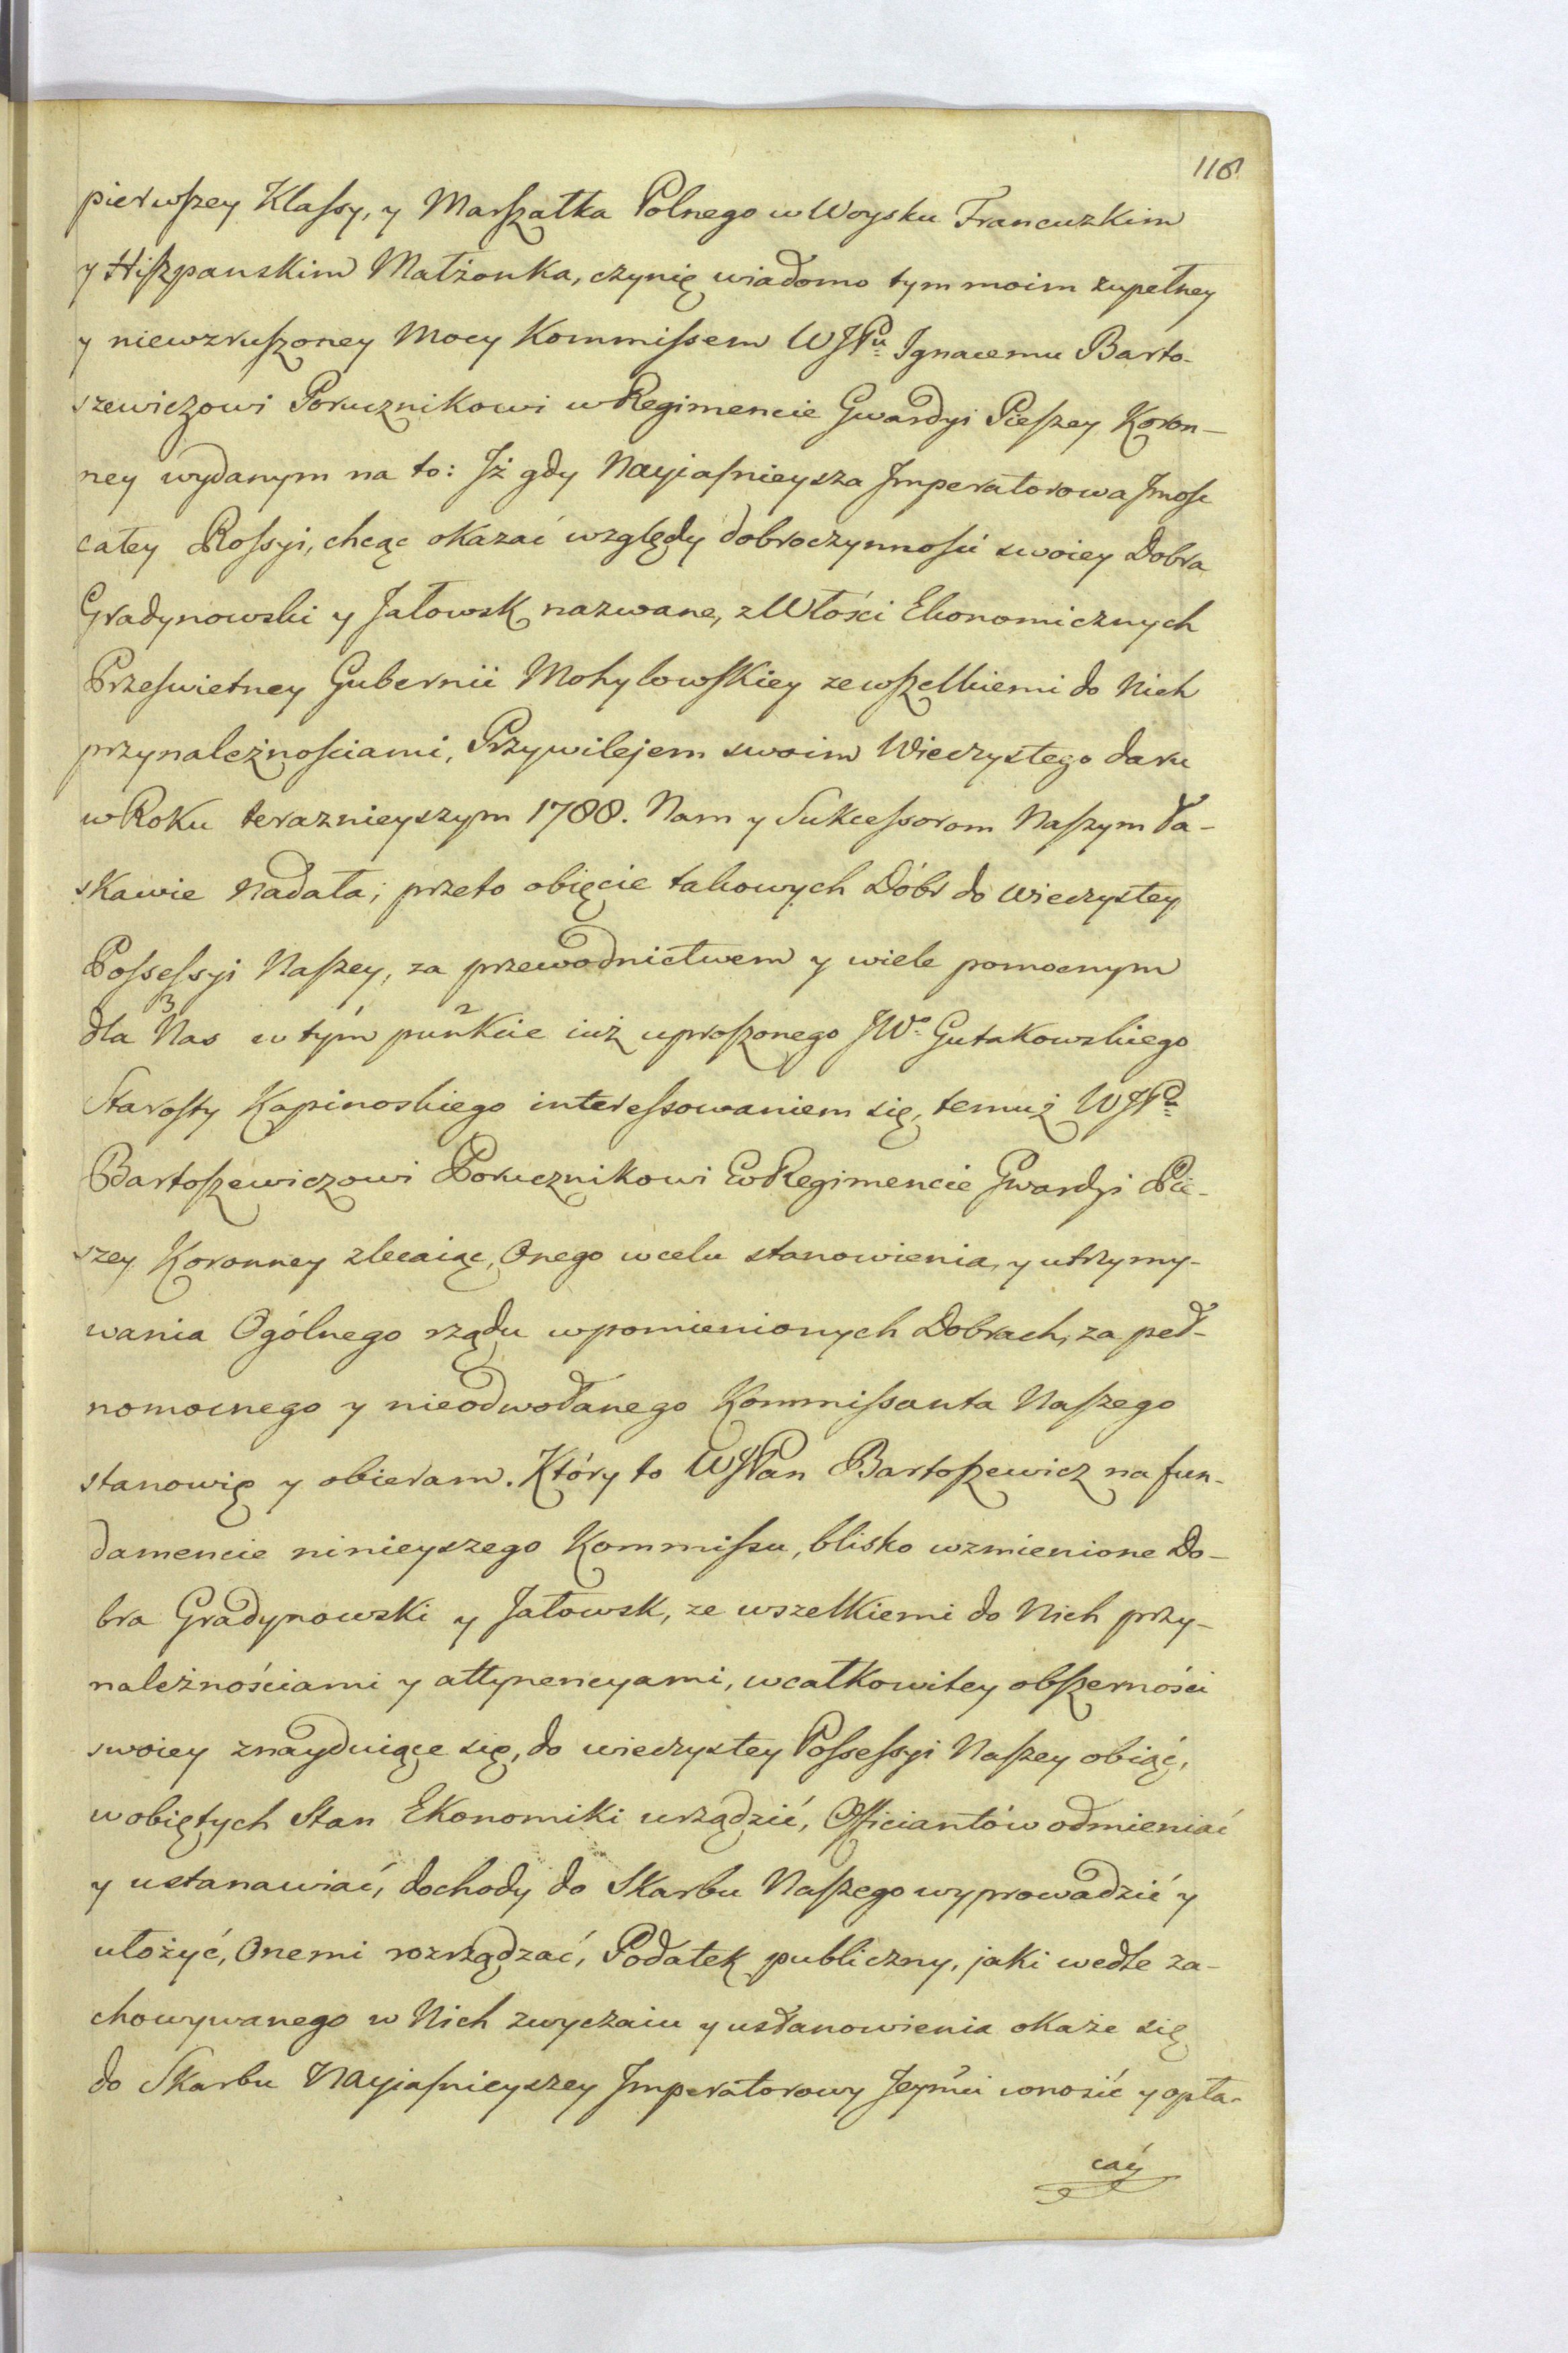 118
pierwszey Klassy, y Marszałka Polnego w Woysku Francuzkim
y Hiszpanskim Małżonka, czynię wiadomo tym moim zupełney
y niewzruszoney Mocy Kommissem WJPu Ignacemu Barto-
szewiczowi Porucznikowi w Regimencie Gwardyi Pieszey Koron-
ney wydanym na to: Jż gdy Nayiasnieysza Jmperatorowa Jmosc
całey Rossyi, chcąc okazać względy dobroczynności swoiey Dobra
Gradynowski y Jałowsk nazwane, z Włości Ekonomicznych
Przeswietney Gubernii Mohylowskiey ze wszelkiemi do Nich
przynależnościami, Przywilejem swoim Wieczystego daru
w Roku terazniejszym 1788. Nam y Sukcessorom Naszym ła-
skawie Nadała; przeto obięcie takowych Dóbr do wieczystey
Possessyi Naszey, za przewodnictwem y wiele pomocnym
3 1 2
dla Nas w tym punkcie iuż uproszonego JWo Gutakowskiego
Starosty Kapinoskiego interessowaniem się, temuż WJPu
Bartoszewiczowi Porucznikowi w Regimencie Gwardyi Pie-
szey Koronney zlecaiąc, Onego w celu stanowienia, y utrzymy-
wania Ogólnego rządu w pomienionych Dobrach, za peł-
nomocnego y nieodwołanego Kommissanta Naszego
stanowię y obieram. Który to WJPan Bartoszewicz na fun-
damencie ninieyszego Kommissu, blisko wzmienione Do-
bra Gradynowski y Jałowsk, ze wszelkiemi do Nich przy-
należnościami y attynencyami, w całkowitey obszerności
swoiey znayduiące się, do wieczystey Possessyi Naszey obiąć,
w obiętych Stan Ekonomiki urządzić, Officiantów odmieniać
y ustanawiać, dochody do Skarbu Naszego wyprowadzić y
ułożyć, Onemi rozrządzać, Podatek publiczny, jaki wedle za-
chowywanego w Nich zwyczaiu y ustanowienia okaże się
do Skarbu Nayiasnieyszey Jmperatorowy Jeymci wnosić y opła-
cać